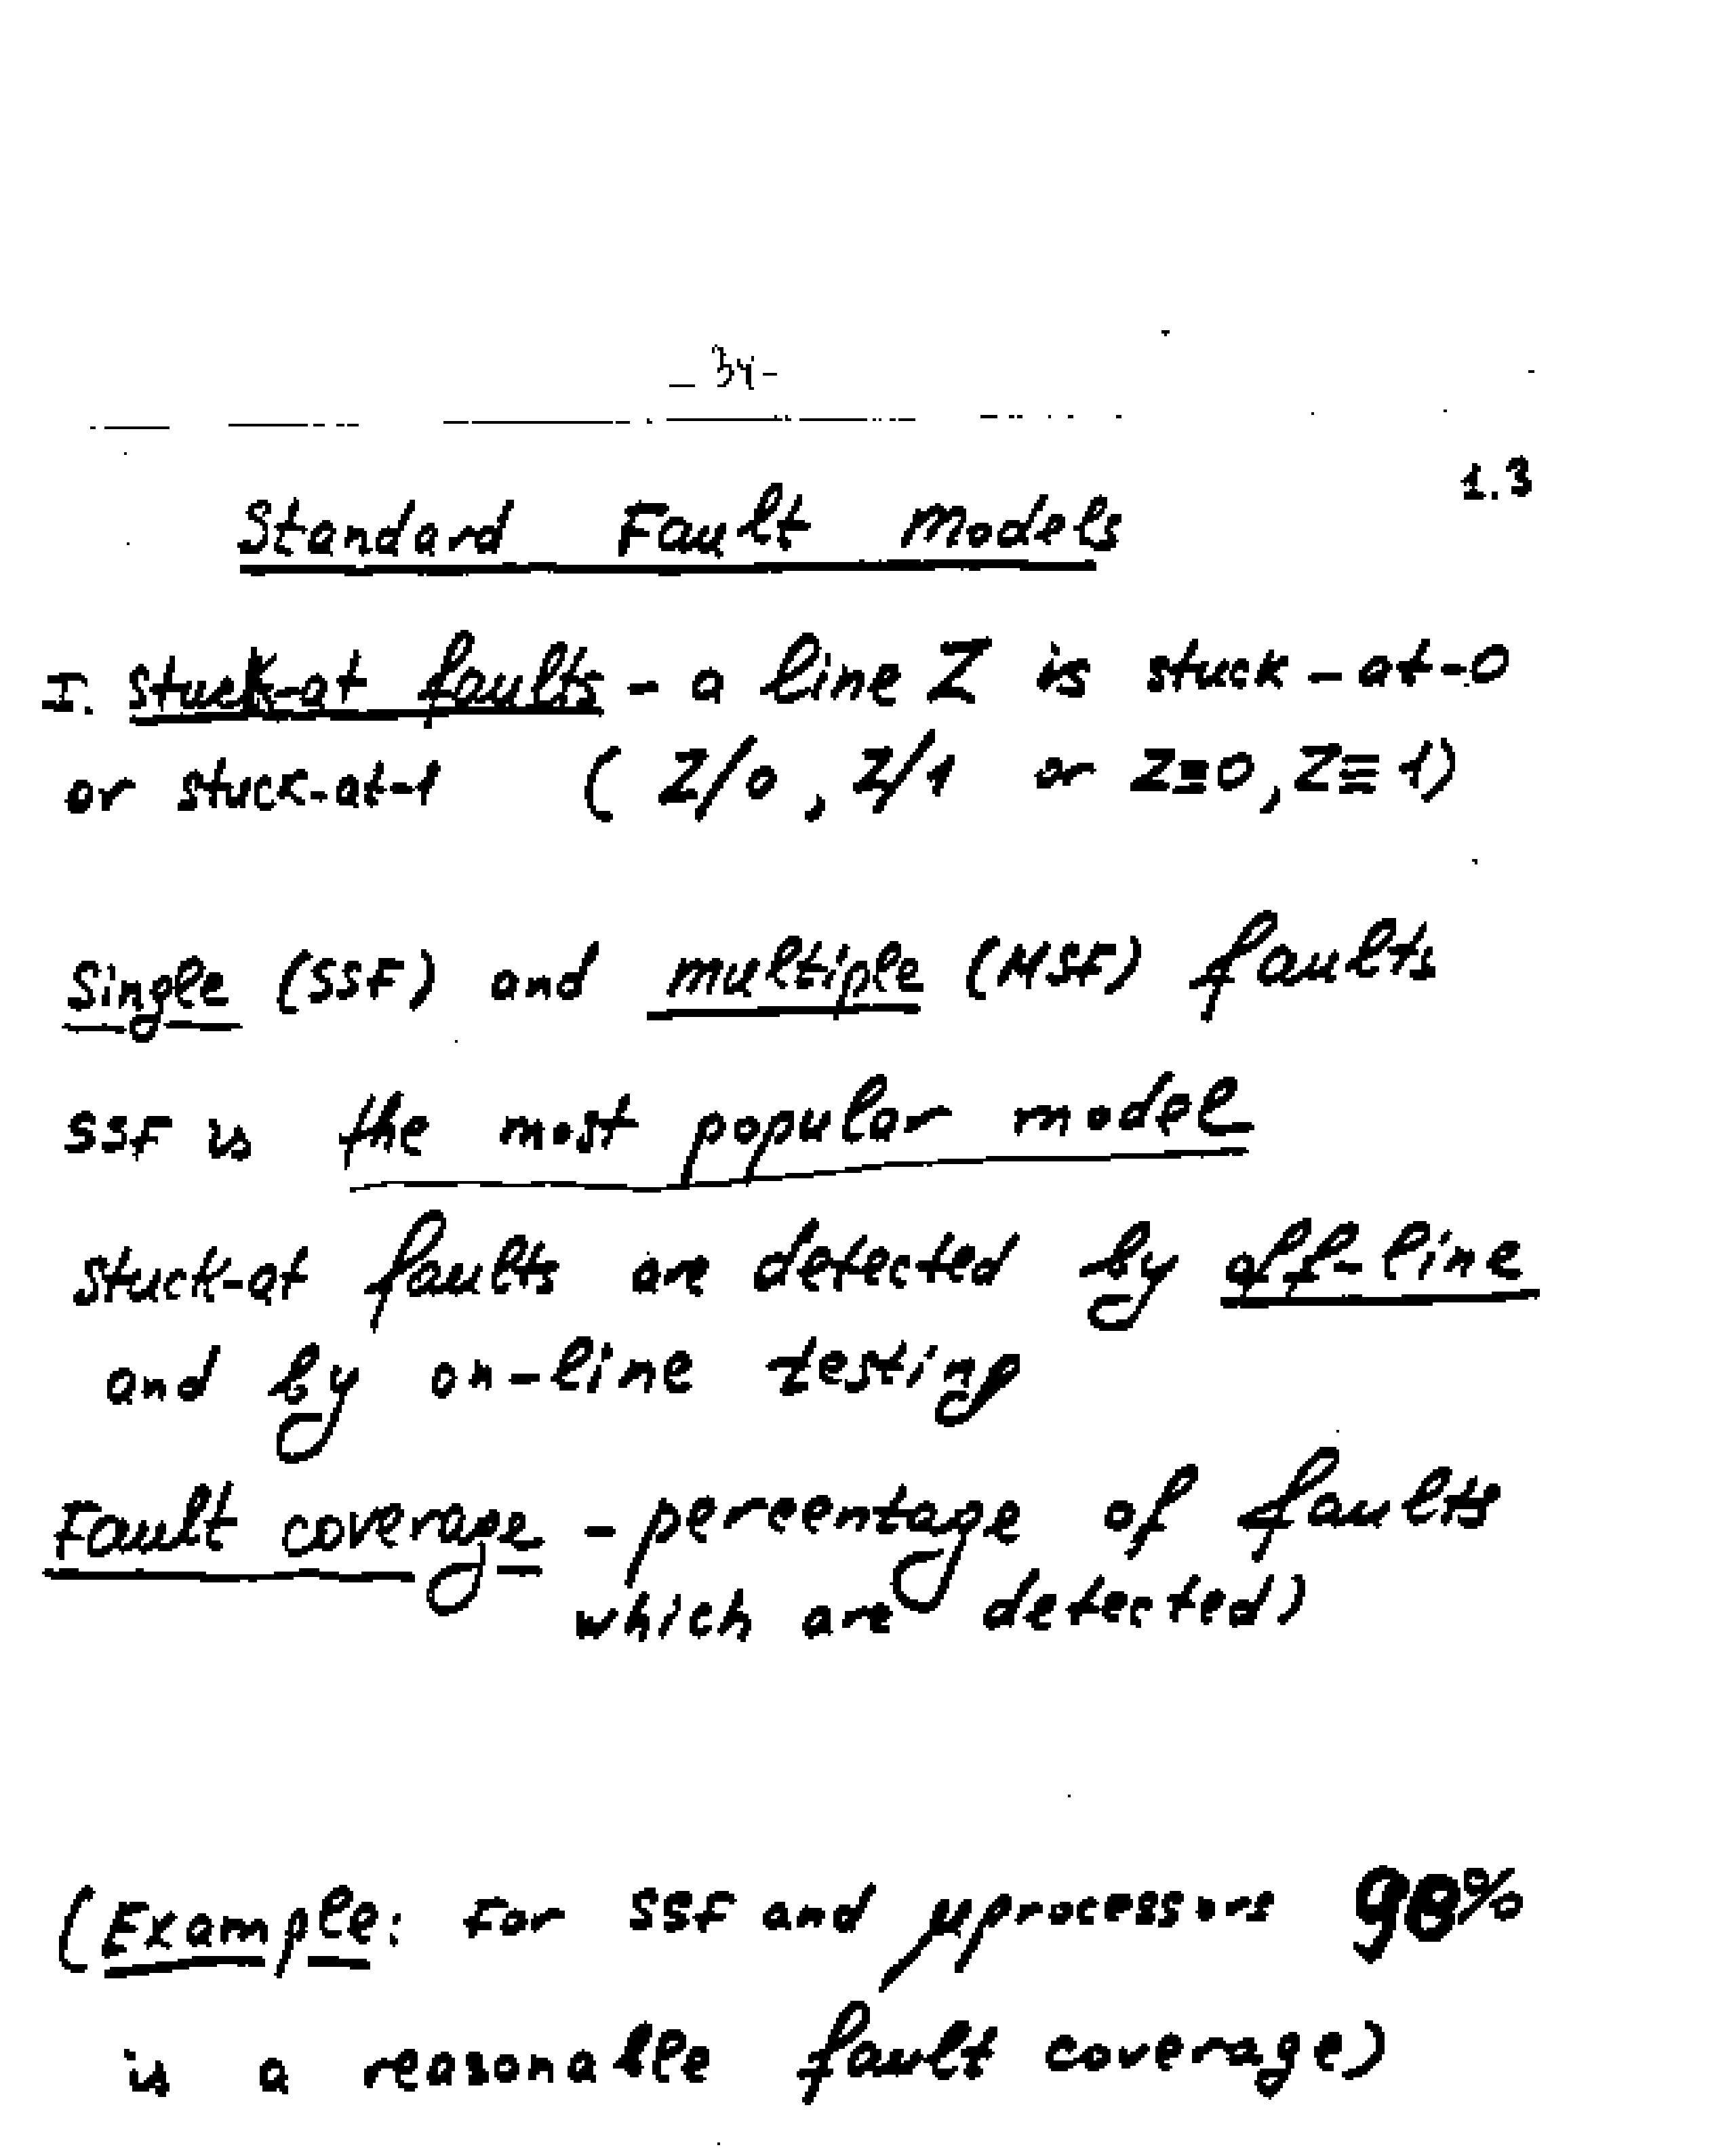 - 34 -
1.3
Standard Fault Models
I. Stuck-at faults - a line Z is stuck-at-0
or stuck-at-1 ( Z/0, Z/1 or Z≡0, Z≡1)
Single (SSF) and multiple (MSF) faults
SSF is the most popular model
Stuck-at faults are detected by off-line
and by on-line testing
Fault coverage - percentage of faults
which are detected)
(Example: For SSF and μprocessors %
is a reasonable fault coverage)